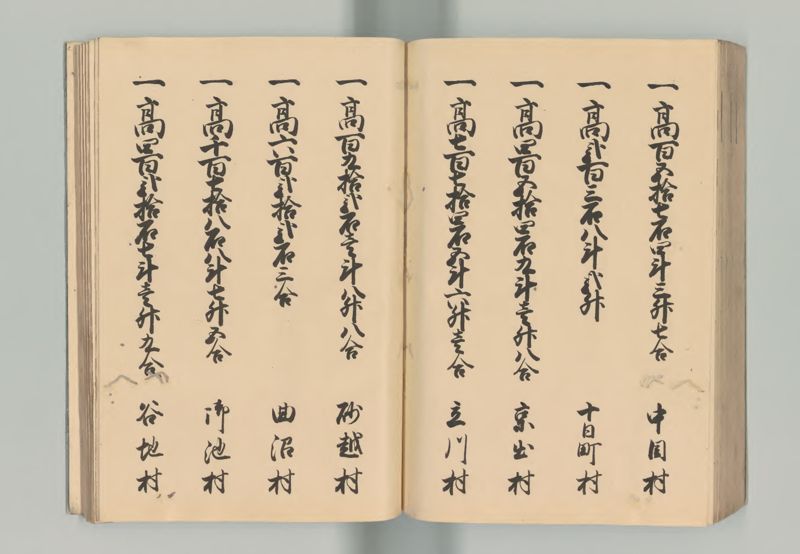 一高百五拾七石四斗三升七合 中目村
一高弐百三石八斗弐升 十日町村
一高四百五拾四石九斗壱升八合 京出村
一高七百七拾四石五斗六升壱合 立川村
一高百九拾弐石壱斗八升八合 砂越村
一高六百弐拾弐石三合 曲沼村
一高千百七拾八石八斗七升五合 御池村
一高四百弐拾石七斗壱升九合 谷地村